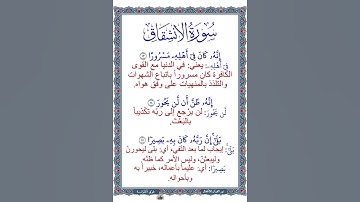 سُورَةُ الِانْشِقَاقِ
إِنَّهُۥ كَانَ فِىٓ أَهْلِهِۦ مَسْرُورًا
فِىٓ أَهْلِهِۦ: يعني: في الدنيا مع القوى
الكافرة كان مسروراً باتباع الشهوات
والتلذذ بالمنهيات على وفق هواه.
إِنَّهُۥ ظَنَّ أَن لَّن يَحُورَ
لَّن يَحُورَ: لن يرجع إلى ربه تكذيباً
بالبعث.
بَلَىٰٓ إِنَّ رَبَّهُۥ كَانَ بِهِۦ بَصِيرًا
بَلَىٰٓ: إيجاب لما بعد النفي، أي: بلى ليحورن
وليبعثن، وليس الأمر كما ظنه.
بَصِيرًا: أي: عليماً بأعماله، خبيراً به
وبأحواله.